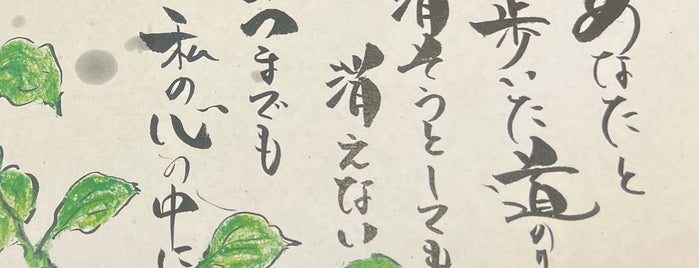 あなたと
歩いた道の
消そうとしても
消えない
つまでも
私の心の中に